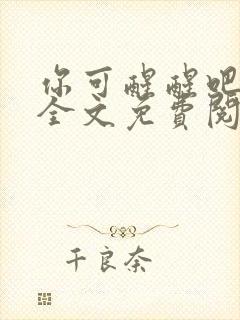 你可醒醒吧
全文免費閱
千良奈